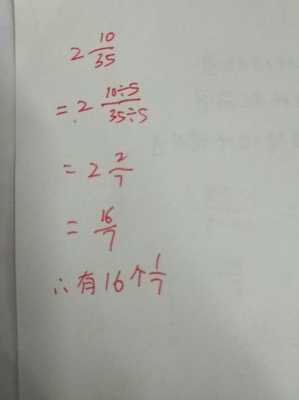 2 10/35
= 2 10÷5/35÷5
= 2 2/7
= 16/7
∴有16个1/7